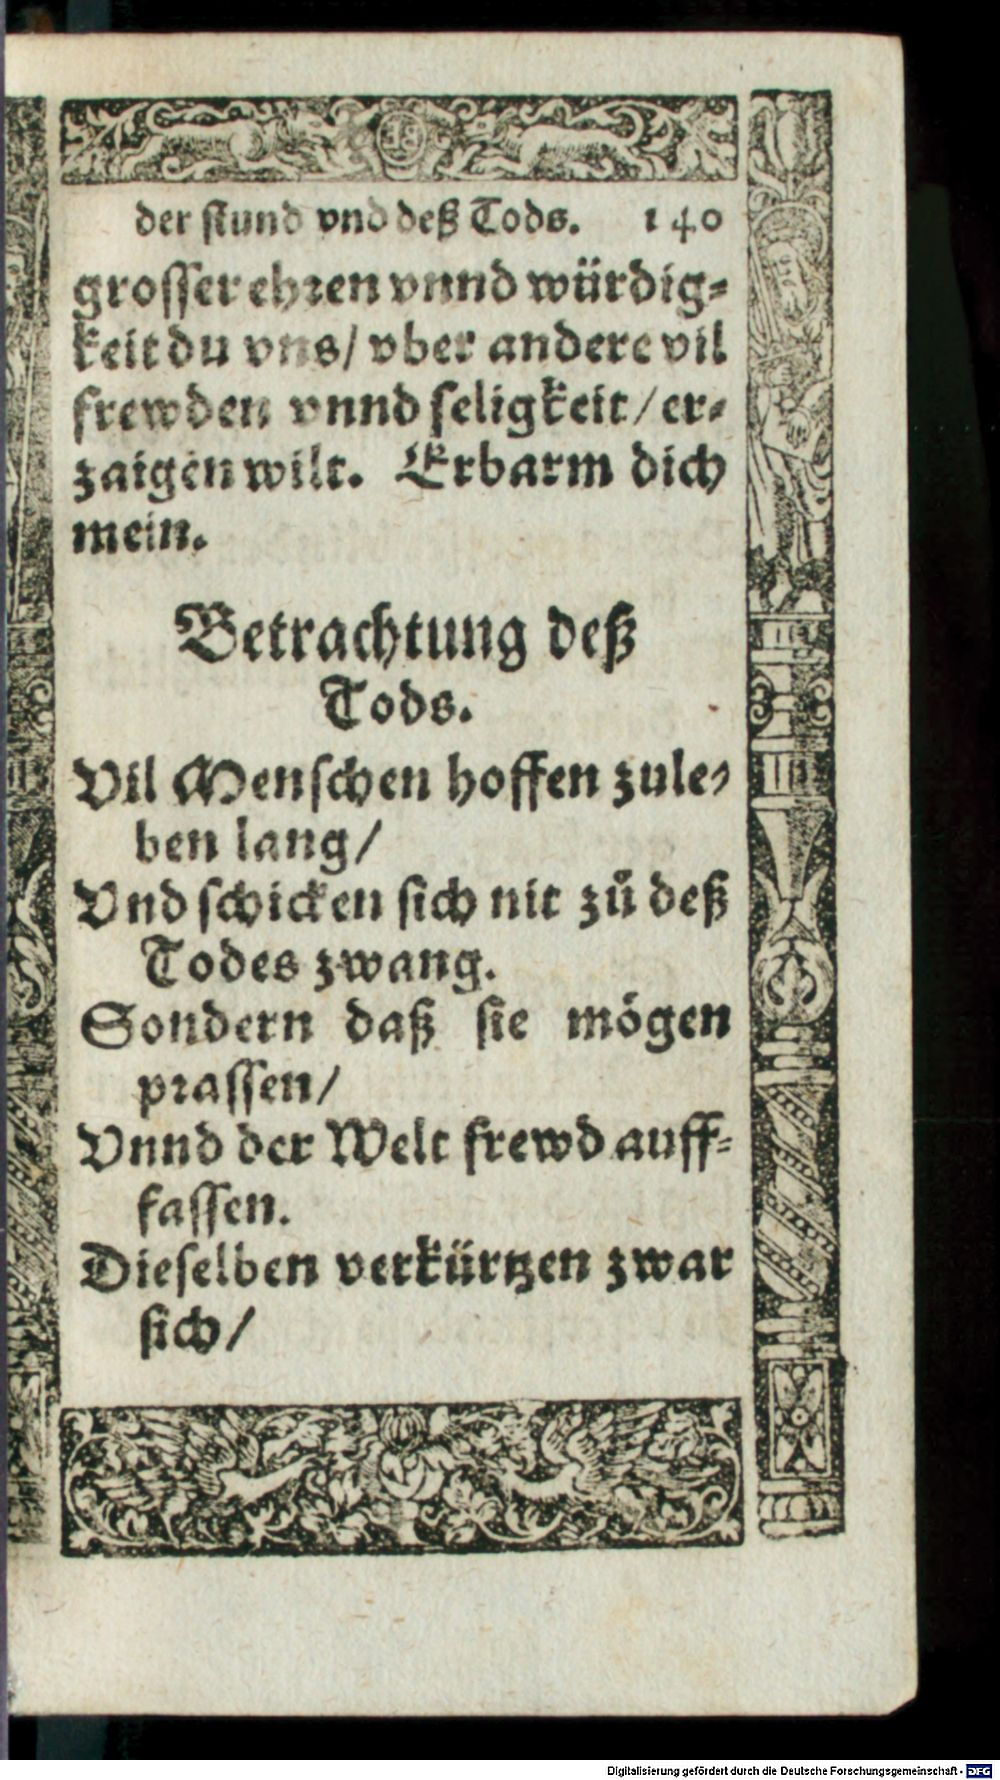 der stund vnd deß Tods. 140
grosser ehren vnnd würdig-
keit du vns/ vber andere vil
frewden vnnd seligkeit/ er-
zaigen wilt. Erbarm dich
mein.
Betrachtung deß
Tods.
Vil Menschen hoffen zule-
ben lang/
Vnd schicken sich nit zů deß
Todes zwang.
Sondern daß sie mögen
prassen/
Vnnd der Welt frewd auff-
fassen.
Dieselben verkürtzen zwar
sich/
Digitalisierung gefördert durch die Deutsche Forschungsgemeinschaft - DFG